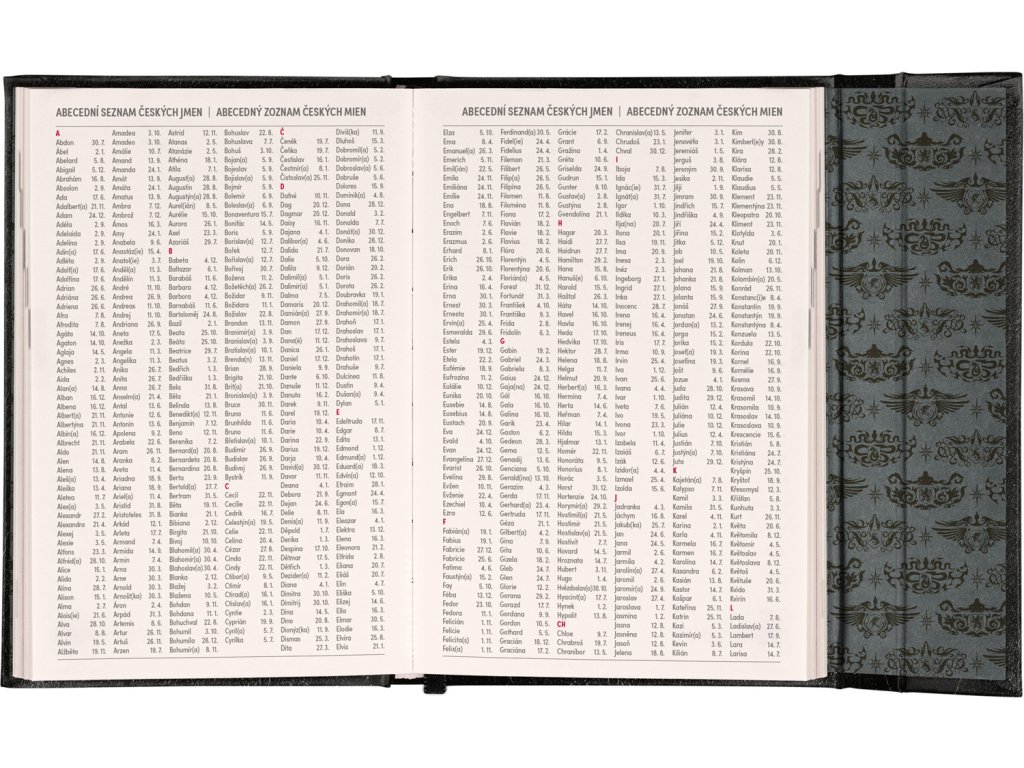 ABECEDNÍ SEZNAM ČESKÝCH JMEN | ABECEDNÝ ZOZNAM ČESKÝCH MIEN
A
Abdon 30. 7.
Ábel 2. 1.
Abelard 5. 8.
Abigail 5. 12.
Abrahám 16. 8.
Absolon 2. 9.
Ada 17. 6.
Adalbert(a) 21. 11.
Adam 24. 12.
Adéla 2. 9.
Adelaida 2. 9.
Adelina 2. 9.
Adin(a) 17. 6.
Adléta 2. 9.
Adolf(a) 17. 6.
Adolfína 17. 6.
Adrian 26. 6.
Adriána 26. 6.
Adriena 26. 6.
Afra 7. 8.
Afrodita 7. 8.
Agáta 14. 10.
Agaton 14. 10.
Aglaja 14. 5.
Agnes 2. 3.
Achiles 2. 11.
Aida 2. 2.
Alan(a) 14. 8.
Alban 16. 12.
Albena 16. 12.
Albert(a) 21. 11.
Albertýna 21. 11.
Albín(a) 16. 12.
Albrecht 21. 11.
Aldo 21. 11.
Alen 14. 8.
Alena 13. 8.
Aleš(a) 13. 4.
Aleška 13. 4.
Aletea 11. 7.
Alex(a) 3. 5.
Alexandr 27. 2.
Alexandra 21. 4.
Alexej 3. 5.
Alexie 3. 5.
Alfons 23. 3.
Alfréd(a) 28. 10.
Alice 15. 1.
Alida 2. 2.
Alina 28. 7.
Alison 15. 1.
Alma 2. 7.
Alois(ie) 21. 6.
Alva 28. 10.
Alvar 8. 8.
Alvin 19. 5.
Alžběta 19. 11.
Amadea 3. 10.
Amadeo 3. 10.
Amálie 10. 7.
Amand 13. 9.
Amanda 24. 1.
Amát 13. 9.
Amáta 24. 1.
Amatus 13. 9.
Ambra 7. 12.
Ambrož 7. 12.
Ámos 16. 3.
Amy 24. 1.
Anabela 9. 6.
Anastáz(ie) 15. 4.
Anatol(ie) 3. 7.
Anděl(a) 11. 3.
Andělín 11. 3.
André 11. 10.
Andrea 26. 9.
Andreas 11. 10.
Andrej 11. 10.
Andriana 26. 9.
Aneta 17. 5.
Anežka 2. 3.
Angela 11. 3.
Angelika 11. 3.
Anika 26. 7.
Anita 26. 7.
Anna 26. 7.
Anselm(a) 21. 4.
Antal 13. 6.
Antonie 12. 6.
Antonín 13. 6.
Apolena 9. 2.
Arabela 22. 6.
Aram 26. 11.
Aranka 8. 2.
Areta 11. 4.
Ariadna 18. 9.
Ariana 18. 9.
Ariel(a) 11. 4.
Aristid 31. 8.
Aristoteles 31. 8.
Arkád 12. 1.
Arleta 17. 7.
Armand 7. 4.
Armida 14. 9.
Armin 7. 4.
Arna 30. 3.
Arne 30. 3.
Arnold 30. 3.
Arnošt(ka) 30. 3.
Áron 2. 4.
Arpád 31. 3.
Artemis 8. 6.
Artur 26. 11.
Artuš 26. 11.
Arzen 19. 7.
Astrid 12. 11.
Atanas 2. 5.
Atanázie 2. 5.
Athéna 18. 1.
Atila 7. 1.
August(a) 28. 8.
Augustin 28. 8.
Augustýn(a) 28. 8.
Aurel(ián) 8. 5.
Aurélie 15. 10.
Aurora 26. 1.
Axel 23. 3.
Azariáš 29. 7.
B
Babeta 4. 12.
Baltazar 6. 1.
Barabáš 11. 6.
Barbara 4. 12.
Barbora 4. 12.
Barnabáš 11. 6.
Bartoloměj 24. 8.
Bazil 2. 1.
Beata 25. 10.
Beáta 25. 10.
Beatrice 29. 7.
Beatus 3. 2.
Bedřich 1. 3.
Bedřiška 1. 3.
Bela 31. 8.
Běla 21. 1.
Belinda 13. 8.
Benedikt(a) 12. 11.
Benjamin 7. 12.
Beno 12. 11.
Berenika 7. 2.
Bernard(a) 20. 8.
Bernardeta 20. 8.
Bernardina 20. 8.
Berta 23. 9.
Bertold(a) 27. 7.
Bertram 31. 5.
Běta 19. 11.
Bianka 21. 1.
Bibiana 2. 12.
Birgita 21. 10.
Bivoj 10. 10.
Blahomil(a) 30. 4.
Blahomír(a) 30. 4.
Blahoslav(a) 30. 4.
Blanka 2. 12.
Blažej 3. 2.
Blažena 10. 5.
Bohdan 9. 11.
Bohdana 11. 1.
Bohuchval 22. 8.
Bohumil 3. 10.
Bohumila 28. 12.
Bohumír(a) 8. 11.
Bohuslav 22. 8.
Bohuslava 7. 7.
Bohuš 3. 10.
Bojan(a) 5. 9.
Bojislav 5. 9.
Bojmír 5. 9.
Bolemír 6. 9.
Boleslav(a) 6. 9.
Bonaventura 15. 7.
Bonifác 14. 5.
Boris 5. 9.
Borislav(a) 12. 7.
Bořek 12. 7.
Bořislav(a) 12. 7.
Bořivoj 30. 7.
Božena 11. 2.
Božetěch(a) 26. 2.
Božidar 9. 11.
Božidara 11. 1.
Božislav 22. 8.
Brandon 13. 11.
Branimír(a) 3. 9.
Branislav(a) 3. 9.
Bratislav(a) 10. 1.
Brenda(n) 13. 11.
Brian 28. 9.
Brigita 21. 10.
Brit(a) 21. 10.
Bronislav(a) 3. 9.
Bruce 30. 11.
Bruna 11. 6.
Brunhilda 11. 6.
Bruno 11. 6.
Břetislav(a) 10. 1.
Budimír 26. 9.
Budislav 26. 9.
Budivoj 26. 9.
Bystrík 11. 9.
C
Cecil 22. 11.
Cecílie 22. 11.
Cedrik 16. 7.
Celestýn(a) 19. 5.
Celie 22. 11.
Celina 20. 4.
Cézar 27. 8.
Cinda 22. 11.
Cindy 22. 11.
Ctibor(a) 9. 5.
Ctimír 8. 1.
Ctirad(a) 16. 1.
Ctislav(a) 16. 1.
Cynthie 2. 3.
Cyprián 19. 9.
Cyril(a) 5. 7.
Cyrilka 5. 7.
Č
Čeněk 19. 7.
Čeňka 19. 7.
Čestislav 16. 1.
Čestmír(a) 8. 1.
Čistoslav(a) 25. 11.
D
Dafné 10. 11.
Dag 20. 12.
Dagmar 20. 12.
Daisy 16. 11.
Dajana 4. 1.
Dalibor(a) 4. 6.
Dalida 21. 7.
Dalie 5. 10.
Dalila 9. 12.
Dalimil(a) 5. 1.
Dalimír(a) 5. 1.
Dalma 7. 5.
Damaris 20. 12.
Damián(a) 27. 9.
Damon 27. 9.
Dan 17. 12.
Dana(é) 11. 12.
Danica 26. 1.
Daniel 17. 12.
Daniela 9. 9.
Dante 6. 10.
Danuše 11. 12.
Danuta 16. 2.
Darek 9. 11.
Darel 19. 12.
Daria 10. 4.
Darie 10. 4.
Darina 22. 9.
Darius 19. 12.
Darja 10. 4.
David(a) 30. 12.
Davor 11. 11.
Deana 4. 1.
Debora 21. 9.
Dejan 24. 6.
Delie 8. 11.
Denis(a) 11. 9.
Děpold 1. 7.
Derika 1. 3.
Despina 17. 10.
Dětmar 17. 5.
Dětřich 1. 3.
Dezider(a) 11. 2.
Diana 4. 1.
Dimitra 30. 10.
Dimitrij 30. 10.
Dina 14. 5.
Dino 20. 8.
Dionýz(ka) 11. 9.
Dismas 25. 3.
Dita 27. 3.
Diviš(ka) 11. 9.
Dluhoš 15. 3.
Dobromil(a) 5. 2.
Dobromír(a) 5. 2.
Dobroslav(a) 5. 6.
Dobruše 5. 6.
Dolores 15. 9.
Dominik(a) 4. 8.
Dona 28. 12.
Donald 3. 2.
Donalda 7. 7.
Donát(a) 30. 12.
Donika 28. 12.
Donovan 18. 10.
Dora 26. 2.
Dorián 20. 2.
Doris 26. 2.
Dorota 26. 2.
Doubravka 19. 1.
Drahomil(a) 18. 7.
Drahomír(a) 18. 7.
Drahoň 17. 1.
Drahoslav 17. 1.
Drahoslava 9. 7.
Drahoš 17. 1.
Drahotín 17. 1.
Drahuše 9. 7.
Dulcinea 11. 8.
Dustin 9. 4.
Dušan(a) 9. 4.
Dylan 5. 1.
E
Edeltruda 17. 11.
Edgar 8. 7.
Edita 13. 1.
Edmond 1. 12.
Edmund(a) 1. 12.
Eduard(a) 18. 3.
Edvín(a) 12. 10.
Efraim 28. 1.
Egmont 24. 4.
Egon(a) 15. 7.
Ela 16. 3.
Eleazar 4. 1.
Elektra 13. 12.
Elena 16. 3.
Eleonora 21. 2.
Elfrída 2. 8.
Eliana 20. 7.
Eliáš 20. 7.
Elin 4. 7.
Eliška 5. 10.
Elizej 14. 6.
Ella 16. 3.
Elmar 30. 5.
Elodie 16. 3.
Elvíra 25. 8.
Elvis 21. 1.
ABECEDNÍ SEZNAM ČESKÝCH JMEN | ABECEDNÝ ZOZNAM ČESKÝCH MIEN
Elza 5. 10.
Ema 8. 4.
Emanuel(a) 26. 3.
Emerich 5. 11.
Emil(ián) 22. 5.
Emila 24. 11.
Emiliána 24. 11.
Emílie 24. 11.
Ena 18. 8.
Engelbert 7. 11.
Enoch 7. 6.
Erazim 2. 6.
Erazmus 2. 6.
Erhard 8. 1.
Erich 26. 10.
Erik 26. 10.
Erika 2. 4.
Erina 16. 4.
Erna 30. 1.
Ernest 30. 3.
Ernesta 30. 1.
Ervín(a) 25. 4.
Esmeralda 29. 6.
Estela 4. 3.
Ester 19. 12.
Etela 22. 2.
Eufémie 18. 9.
Eufrozína 11. 2.
Eulálie 10. 12.
Eunika 20. 10.
Eusebie 14. 8.
Eusebius 14. 8.
Eustach 20. 9.
Eva 24. 12.
Evald 4. 10.
Evan 24. 12.
Evangelína 27. 12.
Evarist 26. 10.
Evelína 29. 8.
Evžen 10. 11.
Evženie 22. 4.
Ezechiel 10. 4.
Ezra 12. 6.
F
Fabián(a) 19. 1.
Fabius 19. 1.
Fabricie 27. 12.
Fabricio 25. 6.
Fatima 4. 6.
Faustýn(a) 15. 2.
Fay 5. 10.
Féba 13. 12.
Fedor 23. 10.
Fedora 11. 1.
Felicián 1. 11.
Felicie 1. 11.
Felicita(s) 1. 11.
Felix(a) 1. 11.
Ferdinand(a) 30. 5.
Fidel(ie) 24. 4.
Fidelius 24. 4.
Filemon 21. 3.
Filibert 26. 5.
Filip(a) 26. 5.
Filipína 26. 5.
Filomen 11. 8.
Filoména 11. 8.
Fiona 17. 2.
Flavián 18. 2.
Flavie 18. 2.
Flavius 18. 2.
Flóra 20. 6.
Florentýn 4. 5.
Florentýna 20. 6.
Florián(a) 4. 5.
Forest 31. 12.
Fortunát 31. 3.
František 4. 10.
Františka 9. 3.
Frída 2. 8.
Fridolín 6. 3.
G
Gabin 19. 2.
Gabriel 24. 3.
Gabriela 8. 3.
Gaius 24. 12.
Gaja(na) 24. 12.
Gál 16. 10.
Gala 16. 10.
Galina 16. 10.
Garik 23. 4.
Gaston 6. 2.
Gedeon 28. 3.
Gema 12. 5.
Genadij 13. 6.
Genciana 5. 10.
Gerald(ina) 13. 10.
Gerazim 4. 3.
Gerda 17. 11.
Gerhard(a) 23. 4.
Gertruda 17. 11.
Géza 21. 1.
Gilbert(a) 4. 2.
Gina 7. 9.
Gita 10. 6.
Gizela 18. 2.
Gleb 24. 7.
Glen 24. 7.
Glorie 12. 2.
Gorana 29. 2.
Gorazd 17. 7.
Gordana 9. 9.
Gordon 10. 5.
Gothard 5. 5.
Gracián 18. 12.
Graciána 17. 2.
Grácie 17. 2.
Grant 6. 9.
Gražina 1. 4.
Gréta 10. 6.
Griselda 24. 9.
Gudrun 15. 1.
Gunter 9. 10.
Gusta(v) 2. 8.
Gustýna 2. 8.
Gvendolína 21. 1.
H
Hagar 20. 3.
Haidi 27. 7.
Haidrun 27. 7.
Hamilton 29. 2.
Hana 15. 8.
Hanuš(e) 6. 10.
Harold 15. 5.
Haštal 26. 3.
Háta 14. 10.
Havel 16. 10.
Havla 16. 10.
Heda 17. 10.
Hedvika 17. 10.
Hektor 28. 7.
Helena 18. 8.
Helga 11. 7.
Helmut 20. 9.
Herbert(a) 16. 3.
Hermína 7. 4.
Herta 14. 6.
Heřman 7. 4.
Hilar 14. 1.
Hilda 15. 3.
Hjalmar 13. 1.
Homér 22. 11.
Honoráta 9. 5.
Honorius 8. 1.
Horác 3. 5.
Horst 31. 12.
Hortenzie 24. 10.
Horymír(a) 29. 2.
Hostimil(a) 21. 5.
Hostimír 21. 5.
Hostislav(a) 21. 5.
Hostivít 7. 7.
Hovard 14. 5.
Hroznata 14. 7.
Hubert 3. 11.
Hugo 1. 4.
Hvězdoslav(a) 30. 10.
Hyacint(a) 17. 7.
Hynek 1. 2.
Hypolit 13. 8.
CH
Chloe 9. 7.
Chrabroš 19. 7.
Chranibor 13. 5.
Chranislav(a) 13. 5.
Chrudoš 23. 1.
Chval 30. 12.
I
Iboja 7. 8.
Ida 15. 3.
Ignác(ie) 31. 7.
Ignát(a) 31. 7.
Igor 1. 10.
Ildika 10. 3.
Ilja(na) 20. 7.
Ilona 20. 1.
Ilsa 19. 11.
Ina 20. 9.
Inesa 2. 3.
Inéz 2. 3.
Ingeborg 27. 1.
Ingrid 27. 1.
Inka 27. 1.
Inocenc 28. 7.
Irena 16. 4.
Irenej 16. 4.
Ireneus 16. 4.
Iris 17. 7.
Irma 10. 9.
Irvin 25. 4.
Iva 1. 12.
Ivan 25. 6.
Ivana 4. 4.
Ivar 1. 10.
Iveta 7. 6.
Ivo 19. 5.
Ivona 23. 3.
Ivor 1. 10.
Izabela 11. 4.
Izaiáš 6. 7.
Izák 12. 6.
Izidor(a) 4. 4.
Izmael 25. 4.
Izolda 15. 6.
J
Jadranka 4. 3.
Jáchym 16. 8.
Jakub(ka) 25. 7.
Jan 24. 6.
Jana 24. 5.
Jarmil 2. 6.
Jarmila 4. 2.
Jarolím(a) 27. 4.
Jaromil 2. 6.
Jaromír(a) 24. 9.
Jaroslav 27. 4.
Jaroslava 1. 7.
Jasmína 1. 2.
Jasna 12. 8.
Jasněna 12. 8.
Jasoň 12. 8.
Jelena 18. 8.
Jenifer 3. 1.
Jenovéfa 3. 1.
Jeremiáš 1. 5.
Jerguš 3. 8.
Jeroným 30. 9.
Jesika 2. 11.
Jiljí 1. 9.
Jimram 30. 9.
Jindřich 15. 7.
Jindřiška 4. 9.
Jiří 24. 4.
Jiřina 15. 2.
Jitka 5. 12.
Job 10. 5.
Joel 19. 10.
Johan 21. 8.
Johana 21. 8.
Jolana 15. 9.
Jolanta 15. 9.
Jonáš 27. 9.
Jonatan 24. 6.
Jordan(a) 13. 2.
Jorga 15. 2.
Jorika 15. 2.
Josef(a) 19. 3.
Josefína 19. 3.
Jošt 9. 6.
Jozue 4. 1.
Juda 28. 10.
Judita 29. 12.
Julián 12. 4.
Juliána 10. 12.
Julie 10. 12.
Julius 12. 4.
Justián 7. 10.
Justýn(a) 7. 10.
Juta 29. 12.
K
Kajetán(a) 7. 8.
Kalypso 7. 11.
Kamil 3. 3.
Kamila 31. 5.
Karel 4. 11.
Karina 2. 1.
Karla 4. 11.
Karmela 16. 7.
Karmen 16. 7.
Karolína 14. 7.
Kasandra 6. 2.
Kasián 13. 8.
Kastor 14. 7.
Kašpar 6. 1.
Kateřina 25. 11.
Katrin 25. 11.
Kazi 5. 3.
Kazimír(a) 5. 3.
Kevin 3. 6.
Kilián 8. 7.
Kim 30. 8.
Kimberl(e)y 30. 8.
Kira 28. 2.
Klára 12. 8.
Klarisa 12. 8.
Klaudie 5. 5.
Klaudius 5. 5.
Klement 23. 11.
Klementýna 23. 11.
Kleopatra 20. 10.
Kliment 23. 11.
Klotylda 3. 6.
Knut 20. 1.
Koleta 20. 11.
Kolín 6. 12.
Kolman 13. 10.
Kolombín(a) 20. 5.
Konrád 26. 11.
Konstanc(i)e 8. 4.
Konstantin 19. 9.
Konstantýn 19. 9.
Konstantýna 8. 4.
Konzuela 13. 5.
Kordula 22. 10.
Korina 22. 10.
Kornel 16. 9.
Kornélie 16. 9.
Kosma 27. 9.
Kosmas 27. 9.
Krasava 10. 9.
Krasomil 14. 10.
Krasomila 10. 9.
Krasoslav 14. 10.
Krasoslava 10. 9.
Krescencie 15. 6.
Kristián 5. 8.
Kristiána 24. 7.
Kristýna 24. 7.
Kryšpín 25. 10.
Kryštof 18. 9.
Křesomysl 12. 3.
Křišťan 5. 8.
Kunhuta 3. 3.
Kurt 26. 11.
Květa 20. 6.
Květomila 8. 12.
Květomír 4. 5.
Květoslav 4. 5.
Květoslava 8. 12.
Květoš 4. 5.
Květuše 20. 6.
Kvido 31. 3.
Kvirin 16. 6.
L
Lada 7. 8.
Ladislav(a) 27. 6.
Lambert 17. 9.
Lara 14. 7.
Larisa 14. 7.